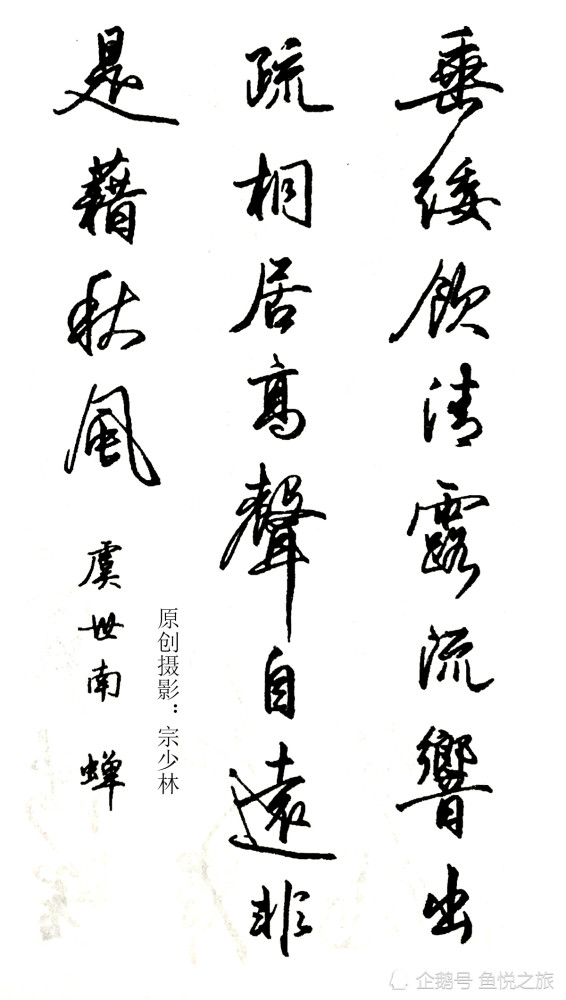 垂緌飲清露流響出
疏桐居高聲自遠非
是藉秋風
虞世南 蝉
原创摄影：宗少林
企鹅号 鱼悦之旅